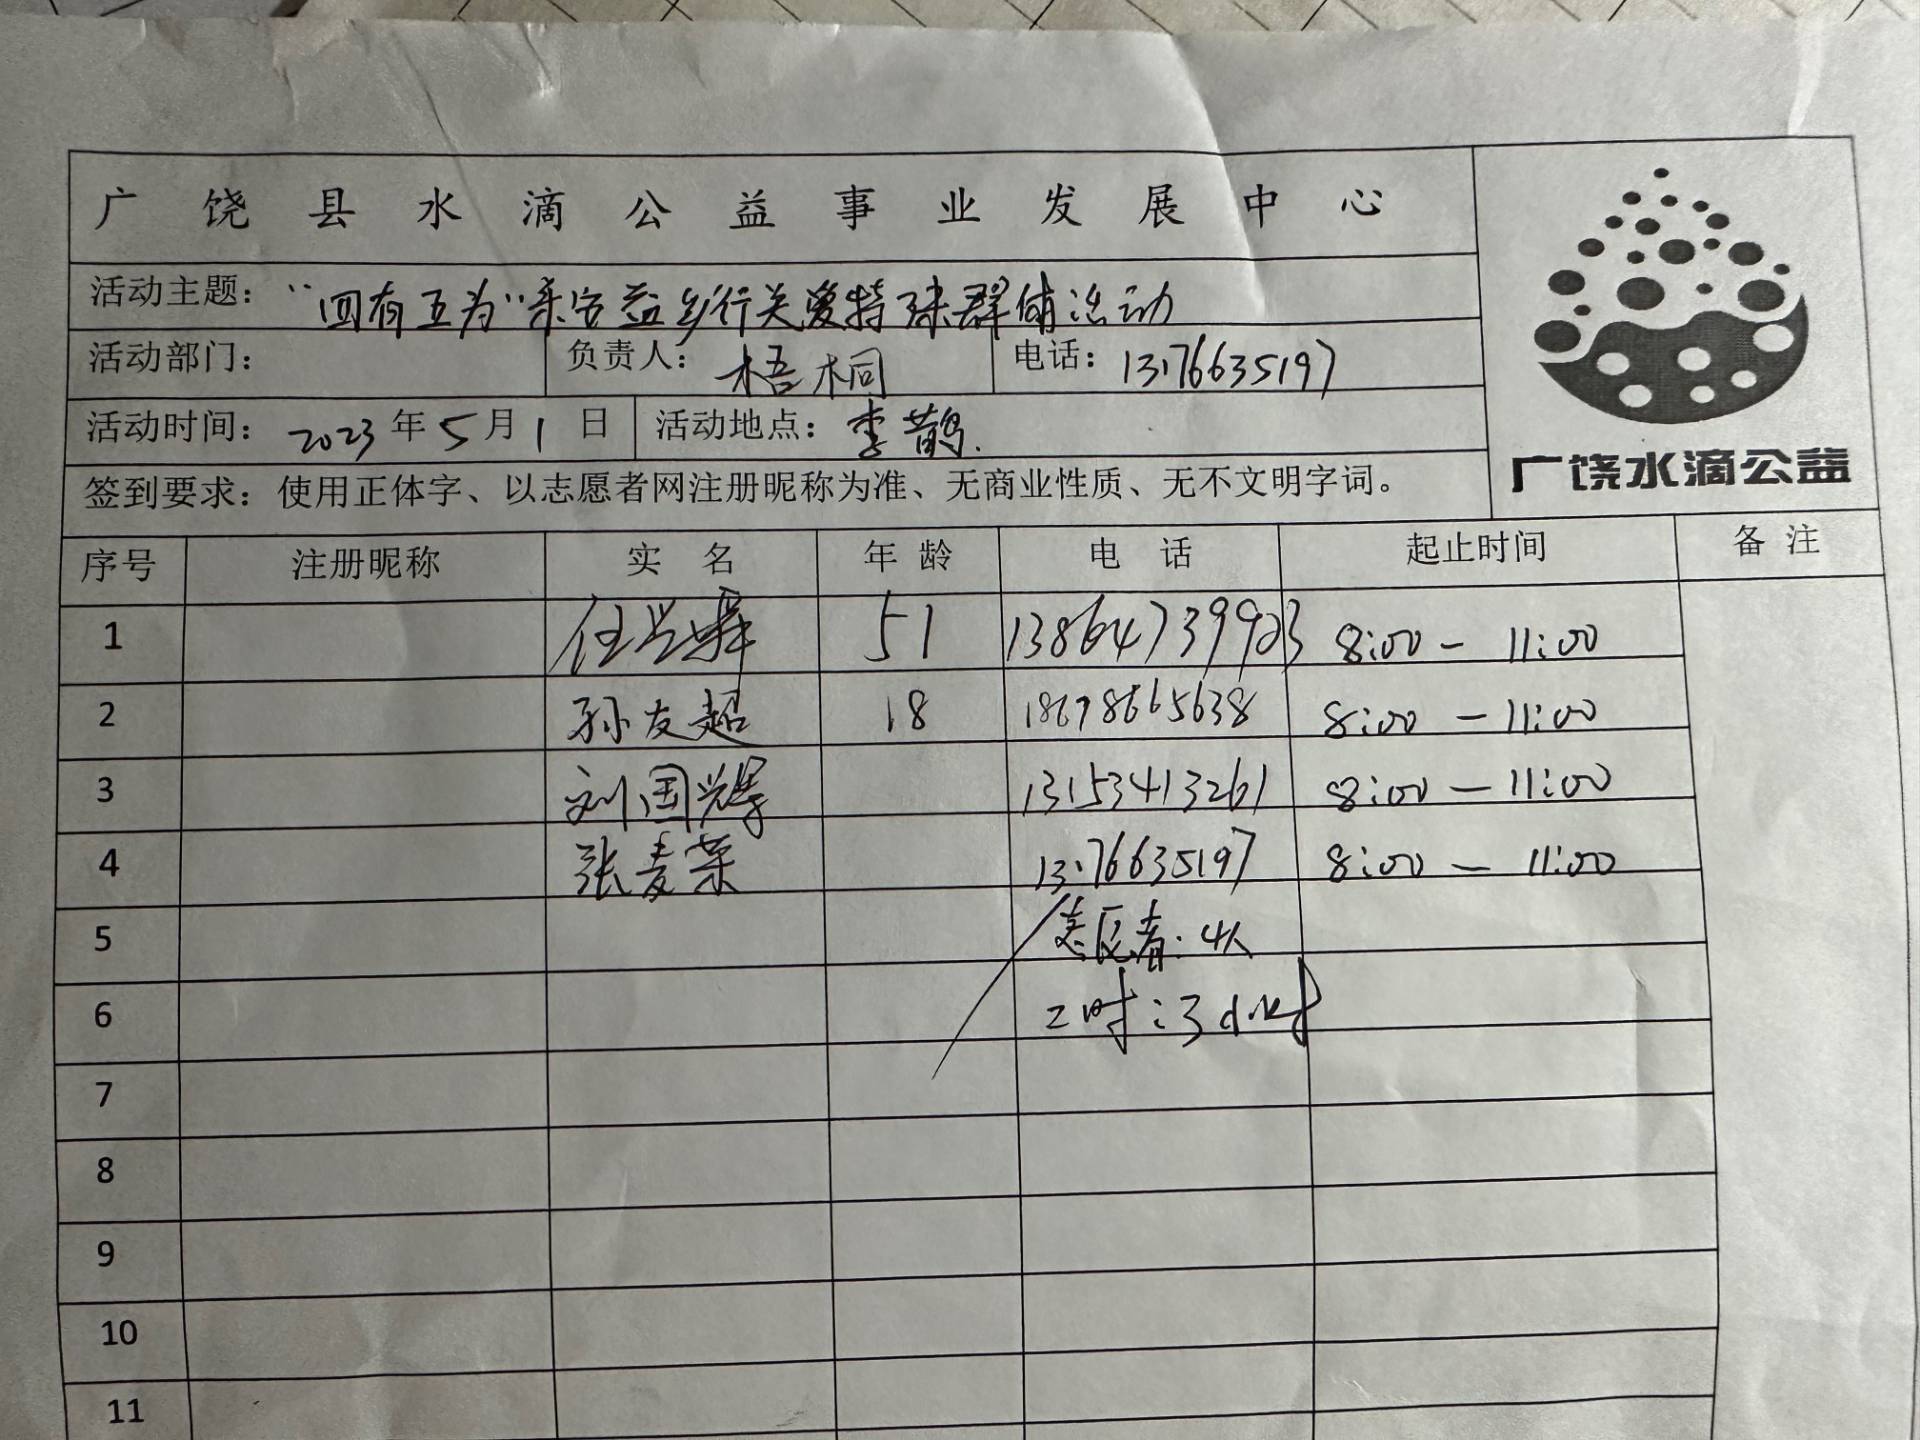 广饶县水滴公益事业发展中心
活动主题：“四有五为”亲方益乡行关爱特殊群体活动
活动部门： 负责人：梧桐 电话：13176635197
活动时间：2023年5月1日 活动地点：李鹊.
广饶水滴公益
签到要求：使用正体字、以志愿者网注册昵称为准、无商业性质、无不文明字词。
序号 注册昵称 实名 年龄 电话 起止时间 备注
1 任兴舜 51 13864739923 8:00 - 11:00
2 孙友超 18 18678665638 8:00 - 11:00
3 刘国辉 13153413261 8:00 - 11:00
4 张麦荣 13176635197 8:00 - 11:00
5 志愿者:4人
6 工时:3小时
7
8
9
10
11